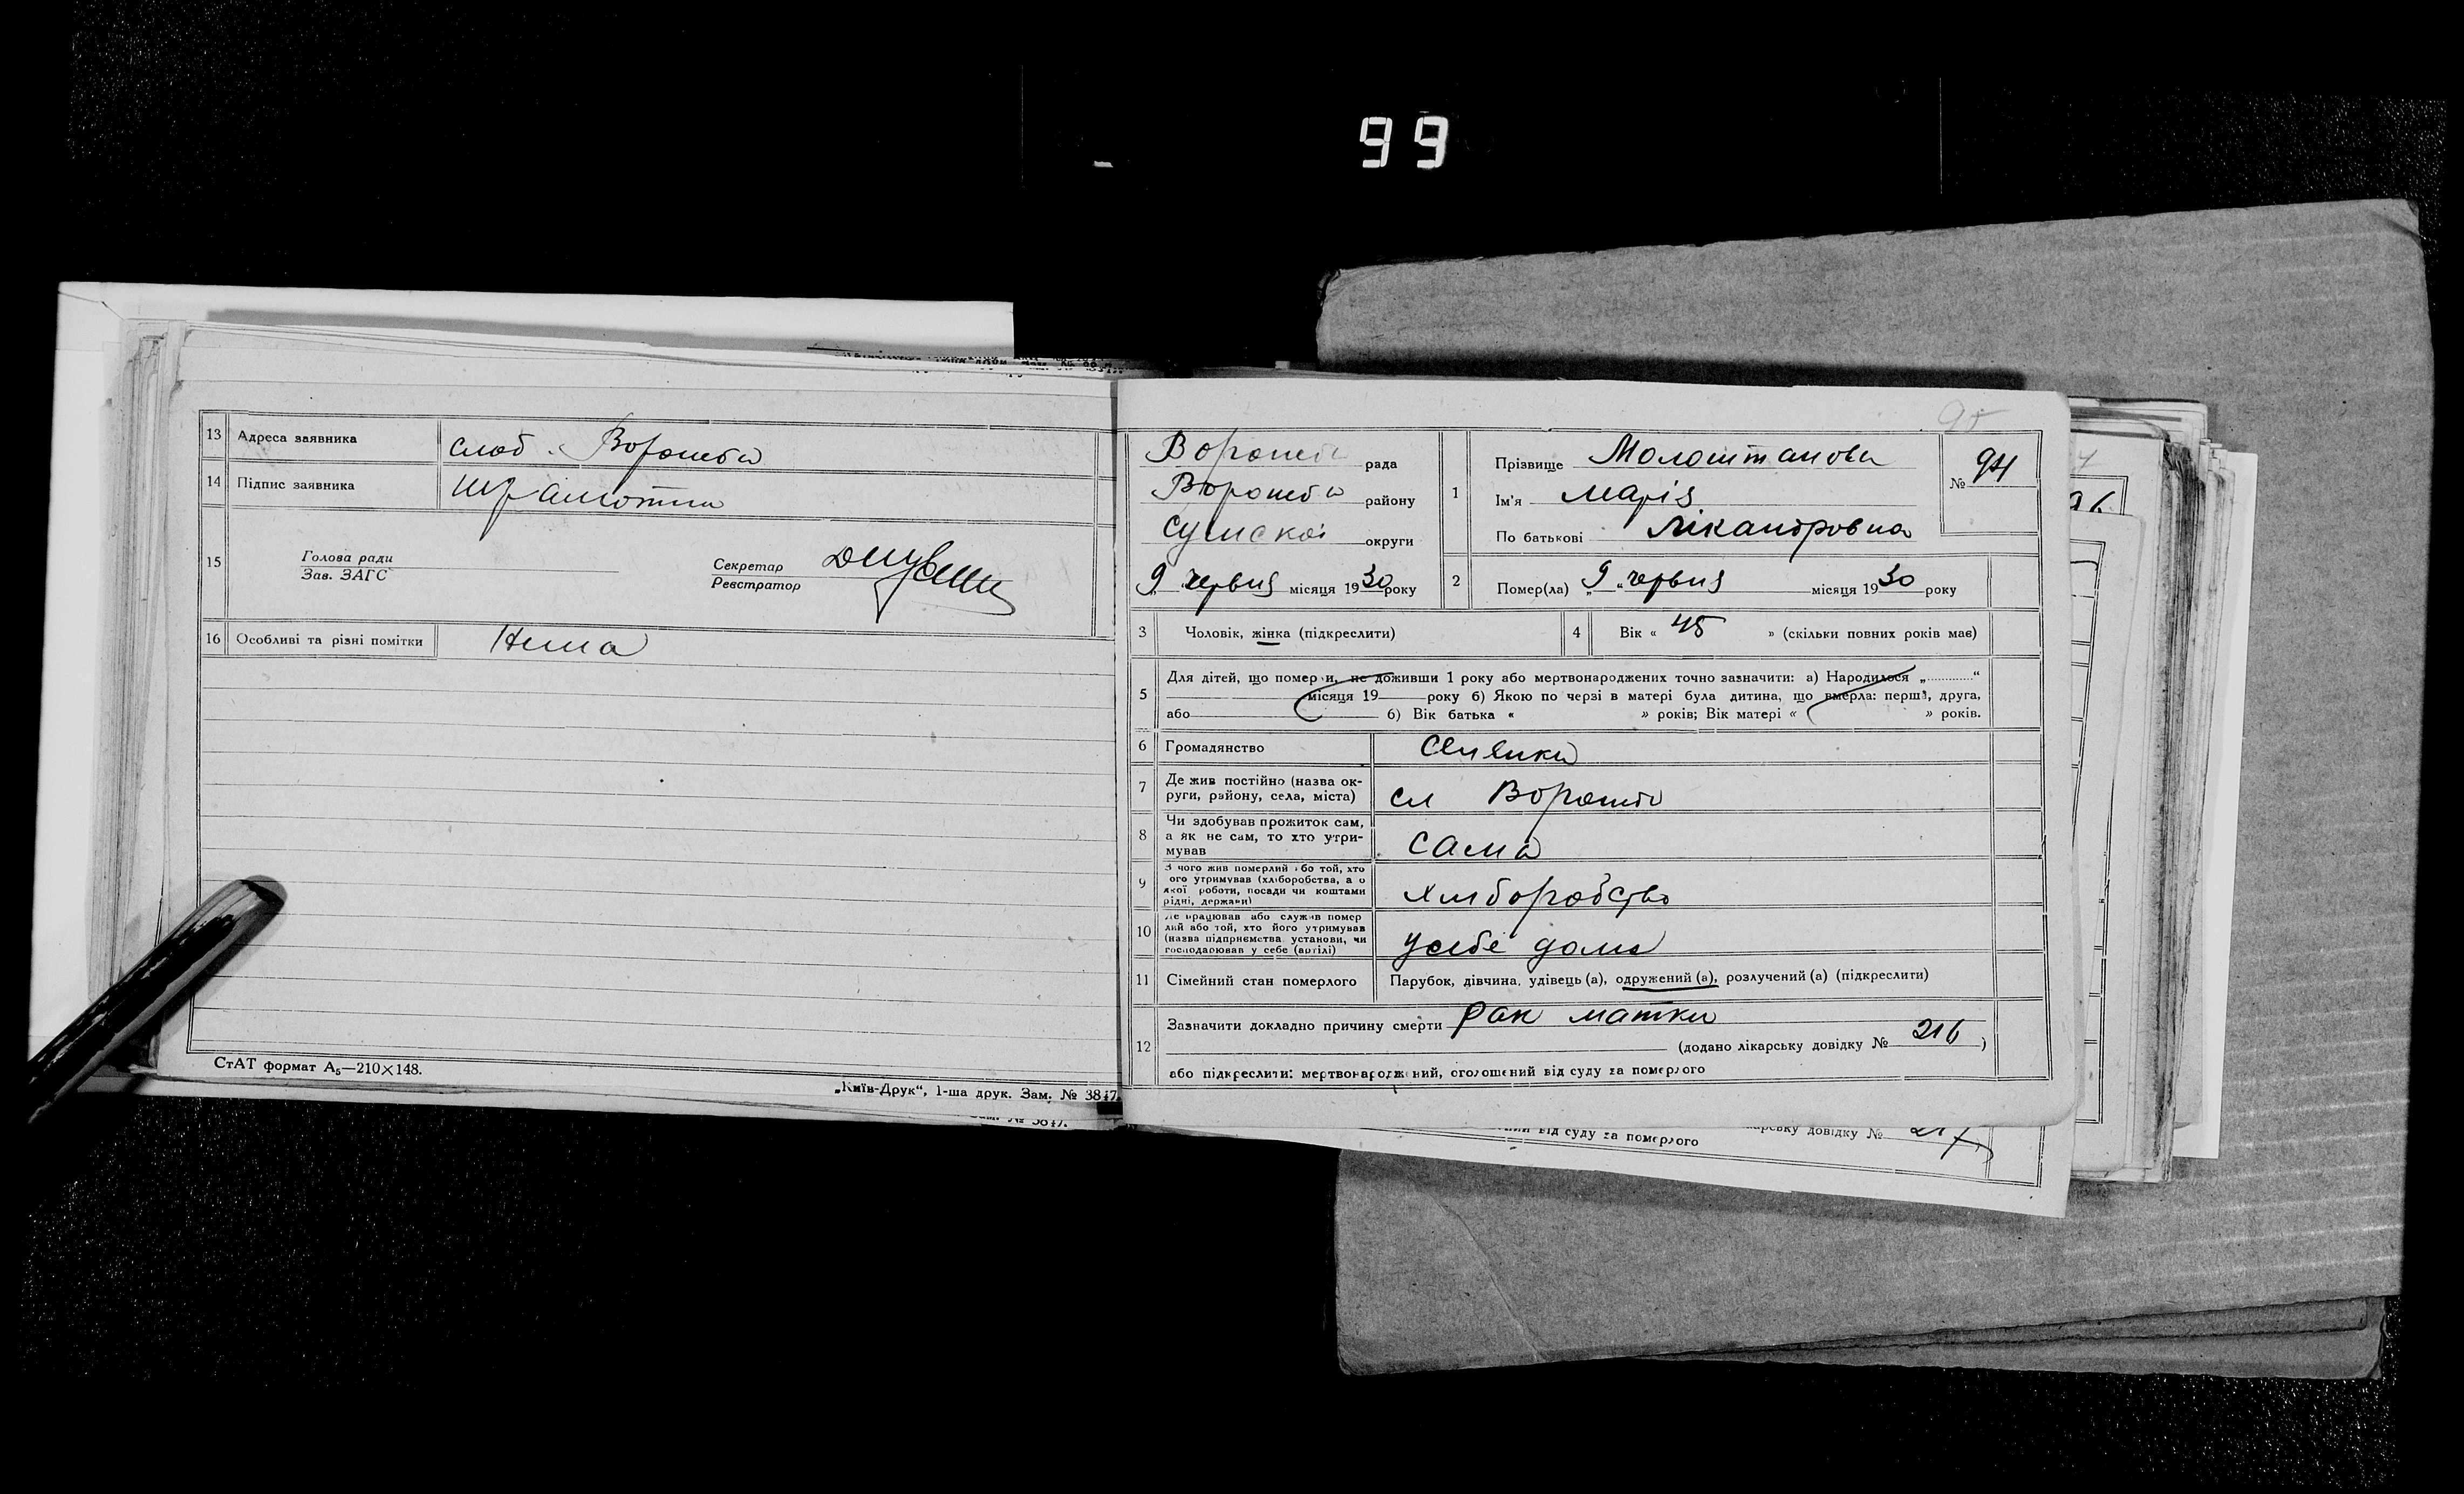 99
13 Адреса заявника слоб. Ворожба
14 Підпис заявника
15 Голова ради
Зав. ЗАГС
Секретар
Реєстратор
16 Особливі та різні помітки Нема
СтАТ формат А₅—210×148.
„Київ-Друк“, 1-ша друк. Зам. № 3847.
95
Ворожба рада
Ворожба району
Сумской округи
9 червня місяця 1930 року
1 Прізвище Молоштанова
Ім'я Марія
По батькові Лікандровна
№ 94
2 Помер(ла) „9“ червня місяця 1930 року
3 Чоловік, жінка (підкреслити)
4 Вік « 45 » (скільки повних років має)
5 Для дітей, що померли, не доживши 1 року або мертвонароджених точно зазначити: а) Народилося „............“
місяця 19 року б) Якою по черзі в матері була дитина, що вмерла: перша, друга,
або б) Вік батька « » років; Вік матері « » років.
6 Громадянство
7 Де жив постійно (назва ок-
руги, району, села, міста) сл Ворожба
8 Чи здобував прожиток сам,
а як не сам, то хто утри-
мував сама
9 З чого жив померлий або той, хто
ого утримував (хліборобства, а о
якої роботи, посади чи коштами
рідні, держави) хліборобство
10 Де працював або служив помер
лий або той, хто його утримував
(назва підприємства установи, чи
господарював у себе (артілі) у себе дома
11 Сімейний стан померлого Парубок, дівчина, удівець (а), одружений (а), розлучений (а) (підкреслити)
12 Зазначити докладно причину смерти Рак матки
(додано лікарську довідку № 216 )
або підкреслити: мертвонароджений, оголошений від суду за померлого
від суду за померлого
довідку № 217